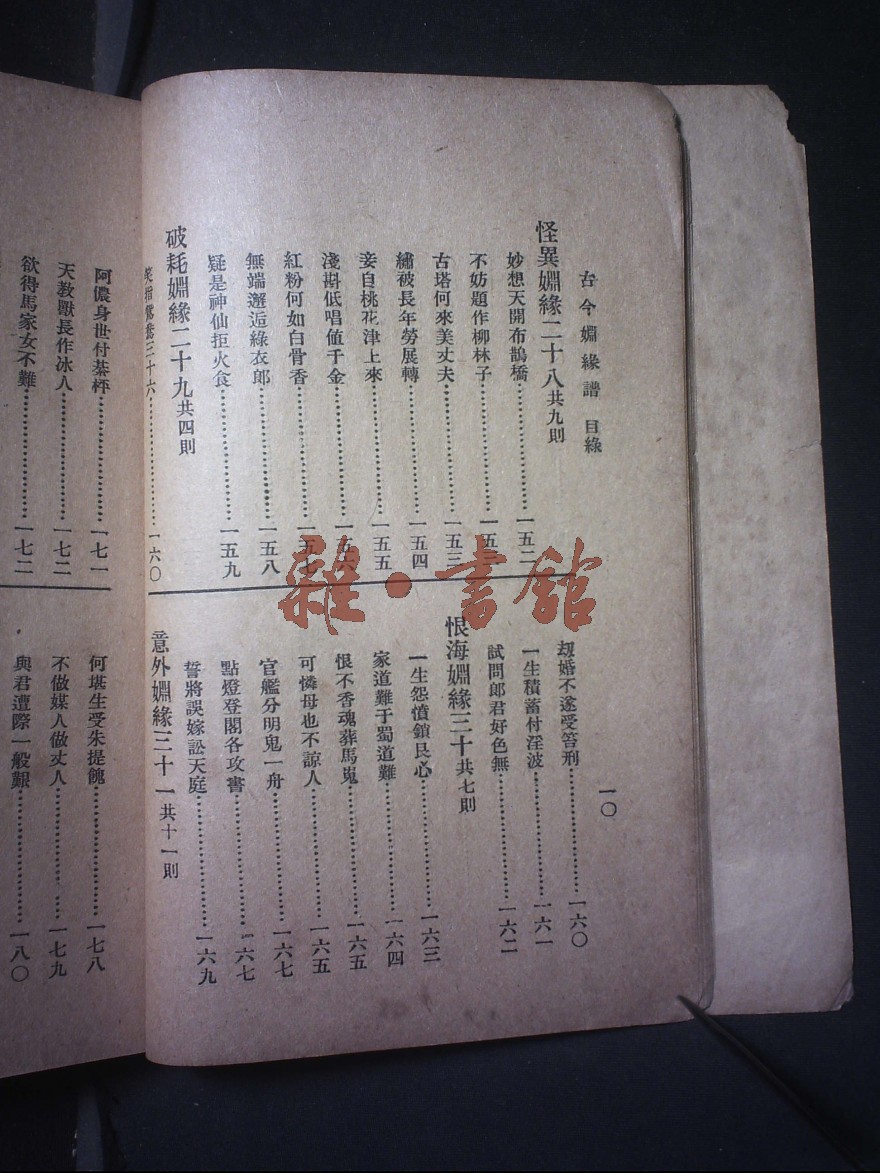 古今婣緣譜 目錄
一〇
怪異婣緣二十八共九則
妙想天開布鵲橋……一五二
不妨題作柳林子……一五二
古塔何來美丈夫……一五三
繡被長年勞展轉……一五四
妾自桃花津上來……一五五
淺斟低唱値千金……一五六
紅粉何如白骨香……一五七
無端邂逅綠衣郎……一五八
疑是神仙拒火食……一五九
破耗婣緣二十九共四則
笑指鴛鴦三十六……一六〇
劫婚不遂受笞刑……一六〇
一生積蓄付淫波……一六一
試問郎君好色無……一六二
恨海婣緣三十共七則
一生怨憤鎖艮心……一六三
家道難于蜀道難……一六四
恨不香魂葬馬嵬……一六五
可憐母也不諒人……一六五
官艦分明鬼一舟……一六七
點燈登閣各攻書……一六七
誓將誤嫁訟天庭……一六九
意外婣緣三十一共十一則
阿儂身世付棊枰……一七一
天教獸長作冰人……一七二
欲得馬家女不難……一七二
何堪生受朱提餽……一七八
不做媒人做丈人……一七九
與君遭際一般艱……一八〇
雜·書館